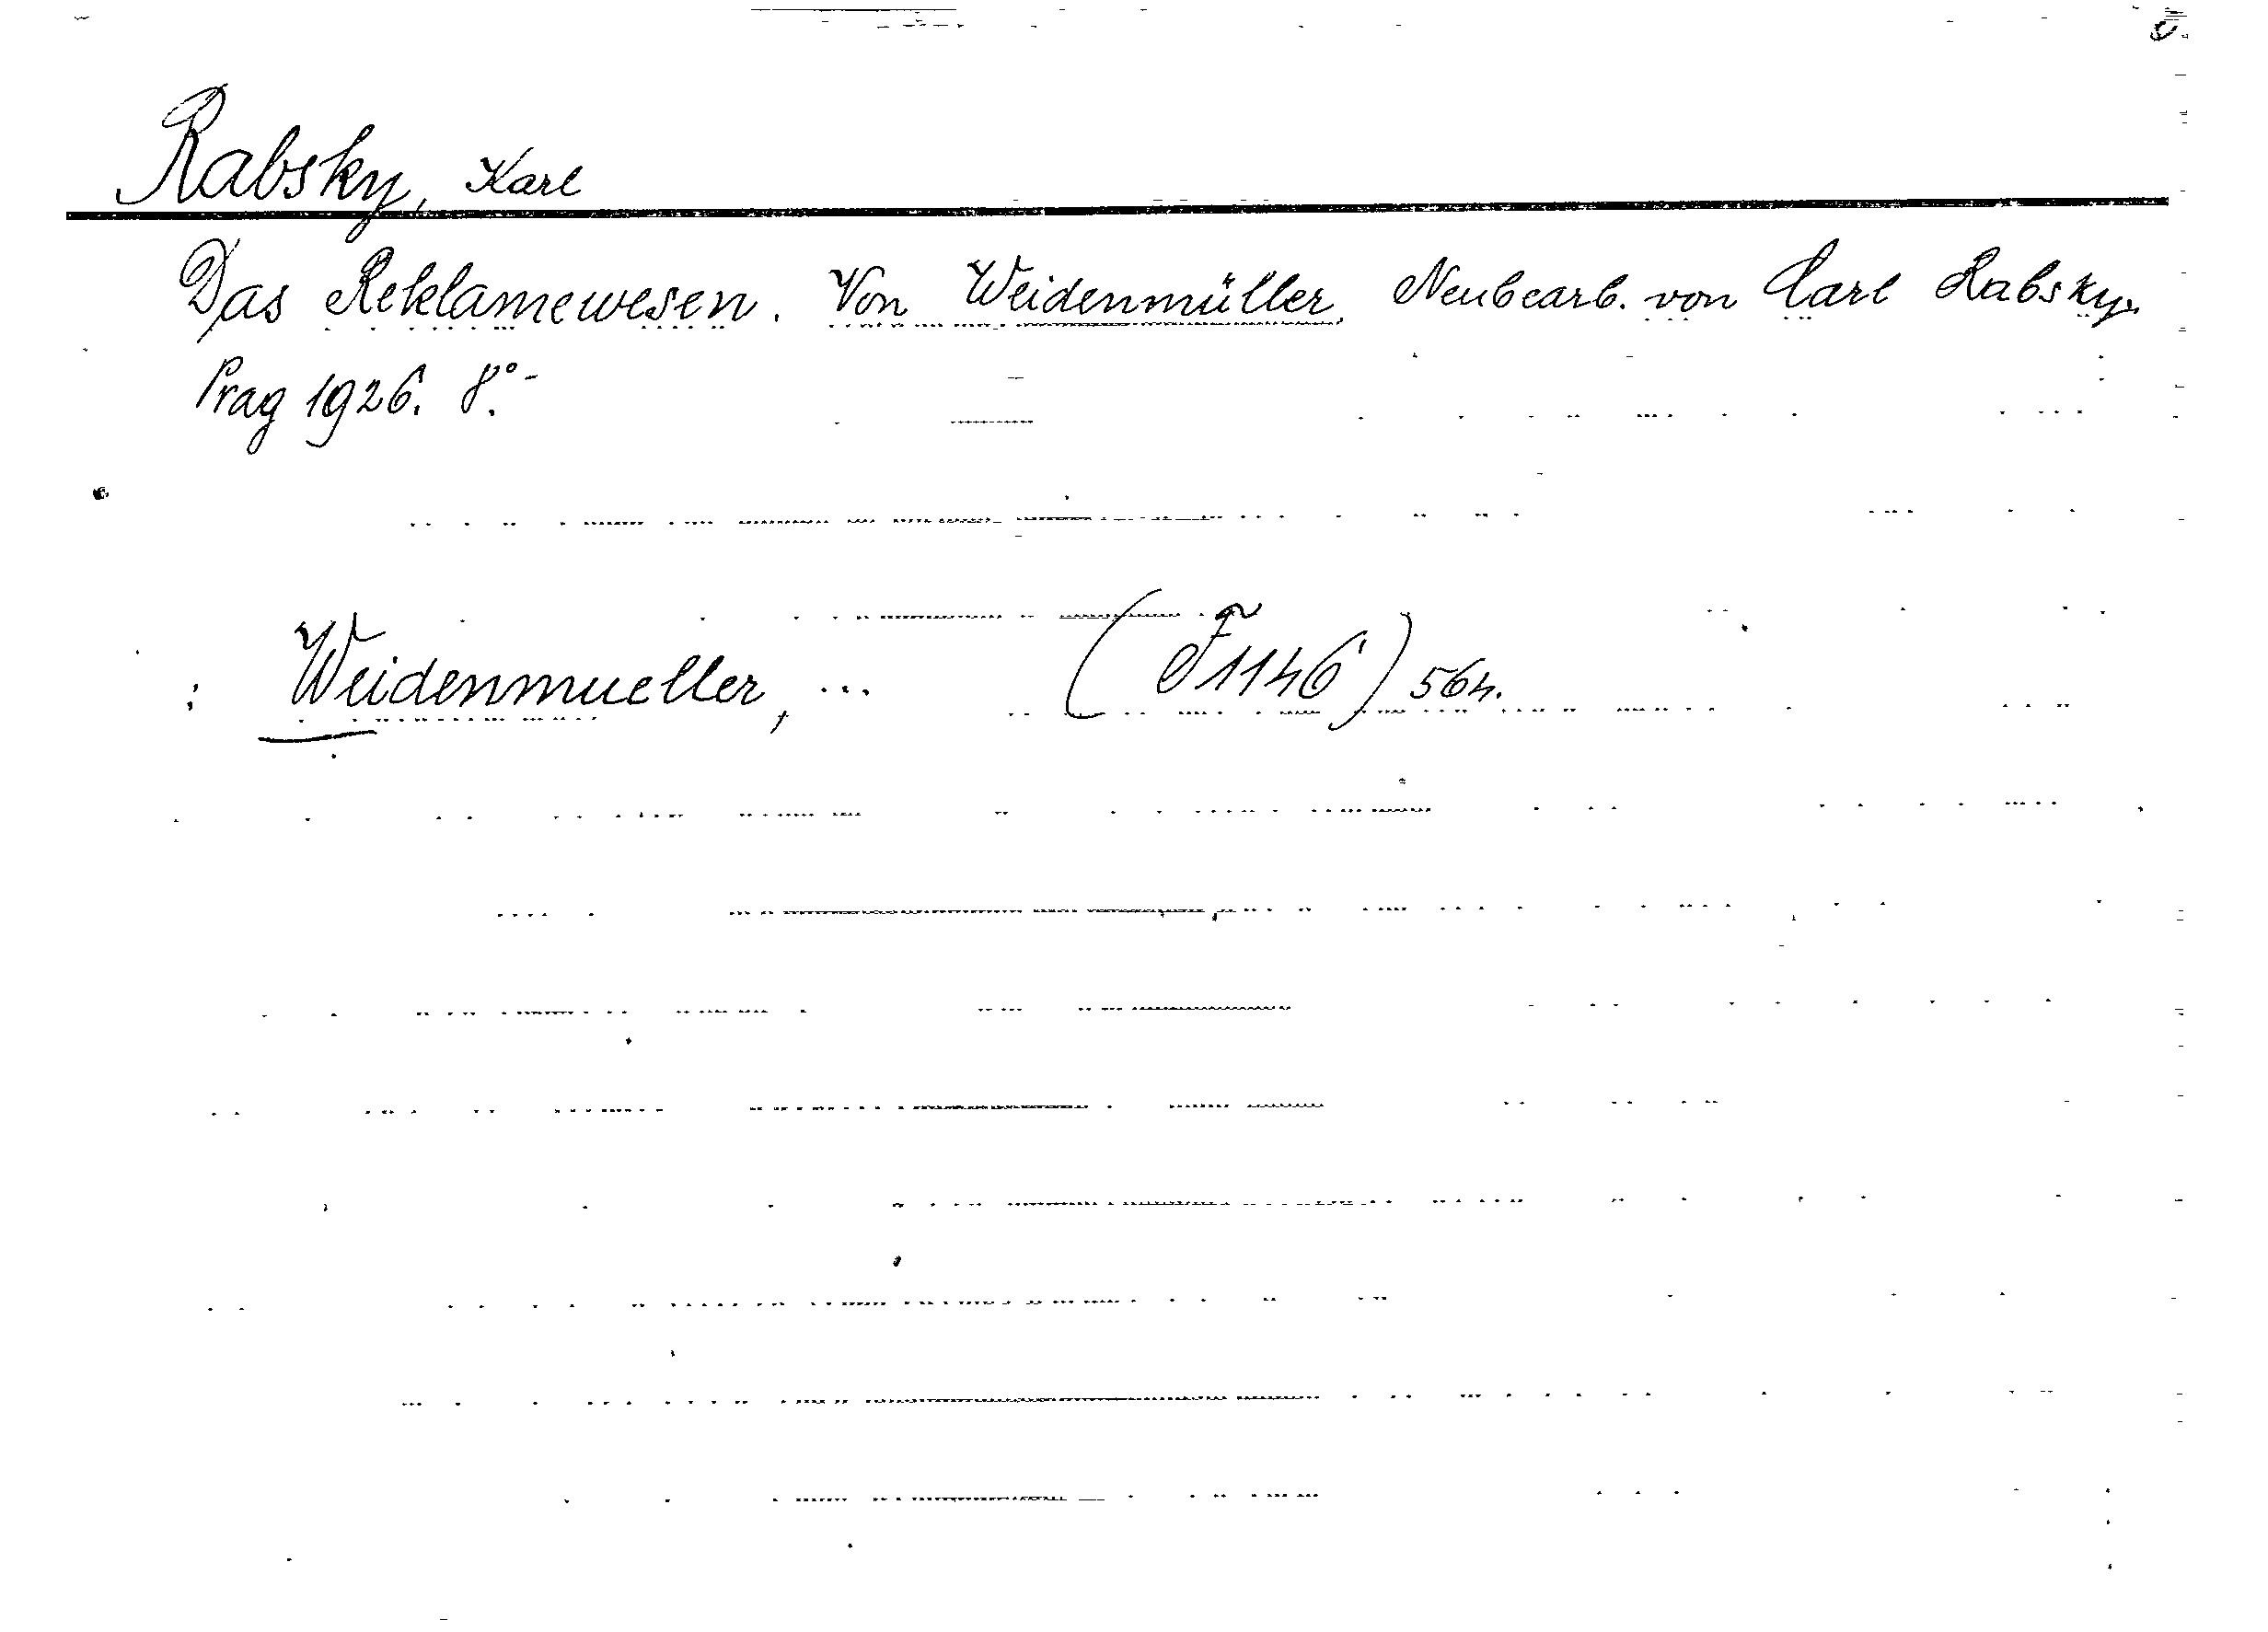 Rabsky, Karl
Das Reklamewesen. Von Weidenmüller. Neubearb. von Carl Rabsky.
Prag 1926. 8°.-
: Weidenmueller, ... (F 1146) 564.